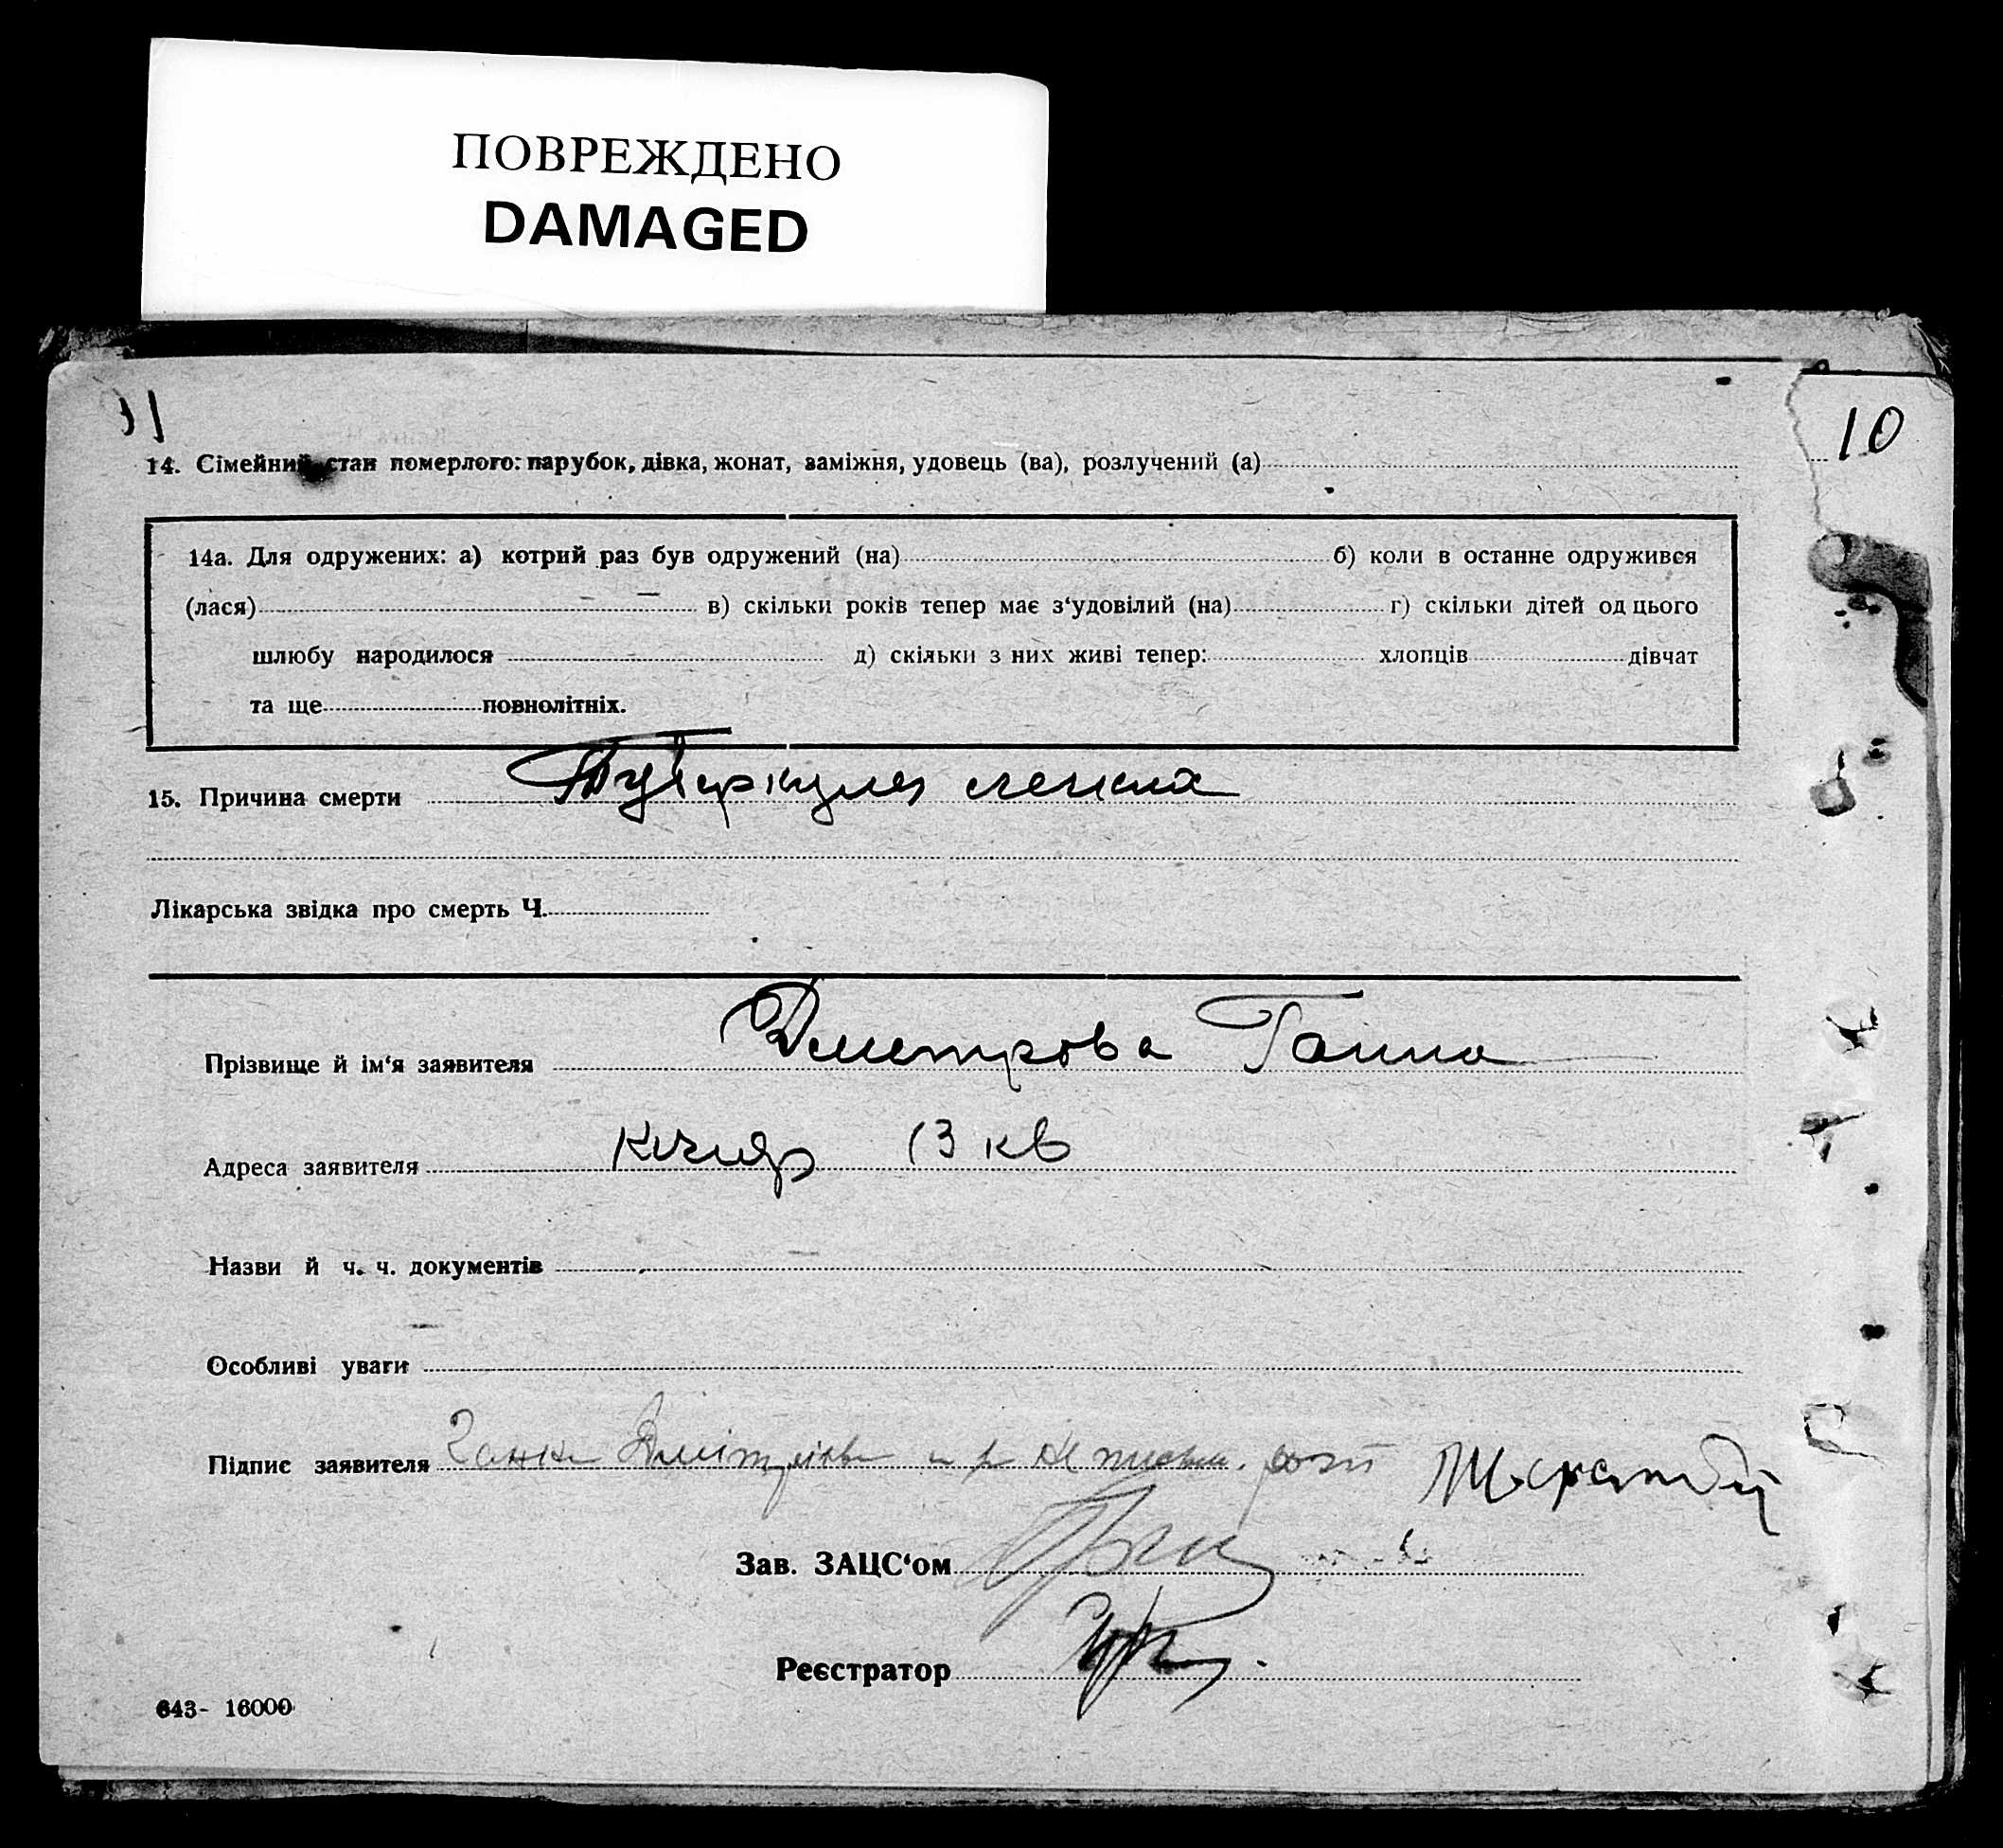 ПОВРЕЖДЕНО
DAMAGED
10
14. Сімейний стан померлого: парубок, дівка, жонат, заміжня, удовець (ва), розлучений (а)
14а. Для одружених: а) котрий раз був одружений (на) б) коли в останнє одружився
(лася) в) скільки років тепер має з‘удовілий (на) г) скільки дітей од цього
шлюбу народилося д) скільки з них живі тепер: хлопців дівчат
та ще повнолітніх.
15. Причина смерти Туберкульоз
Лікарська звідка про смерть Ч.
Прізвище й ім‘я заявителя Дмитрова Ганна
Адреса заявителя 13 кв
Назви й ч. ч. документів
Особливі уваги
Підпис заявителя
Зав. ЗАЦС‘ом
Реєстратор
643- 16000